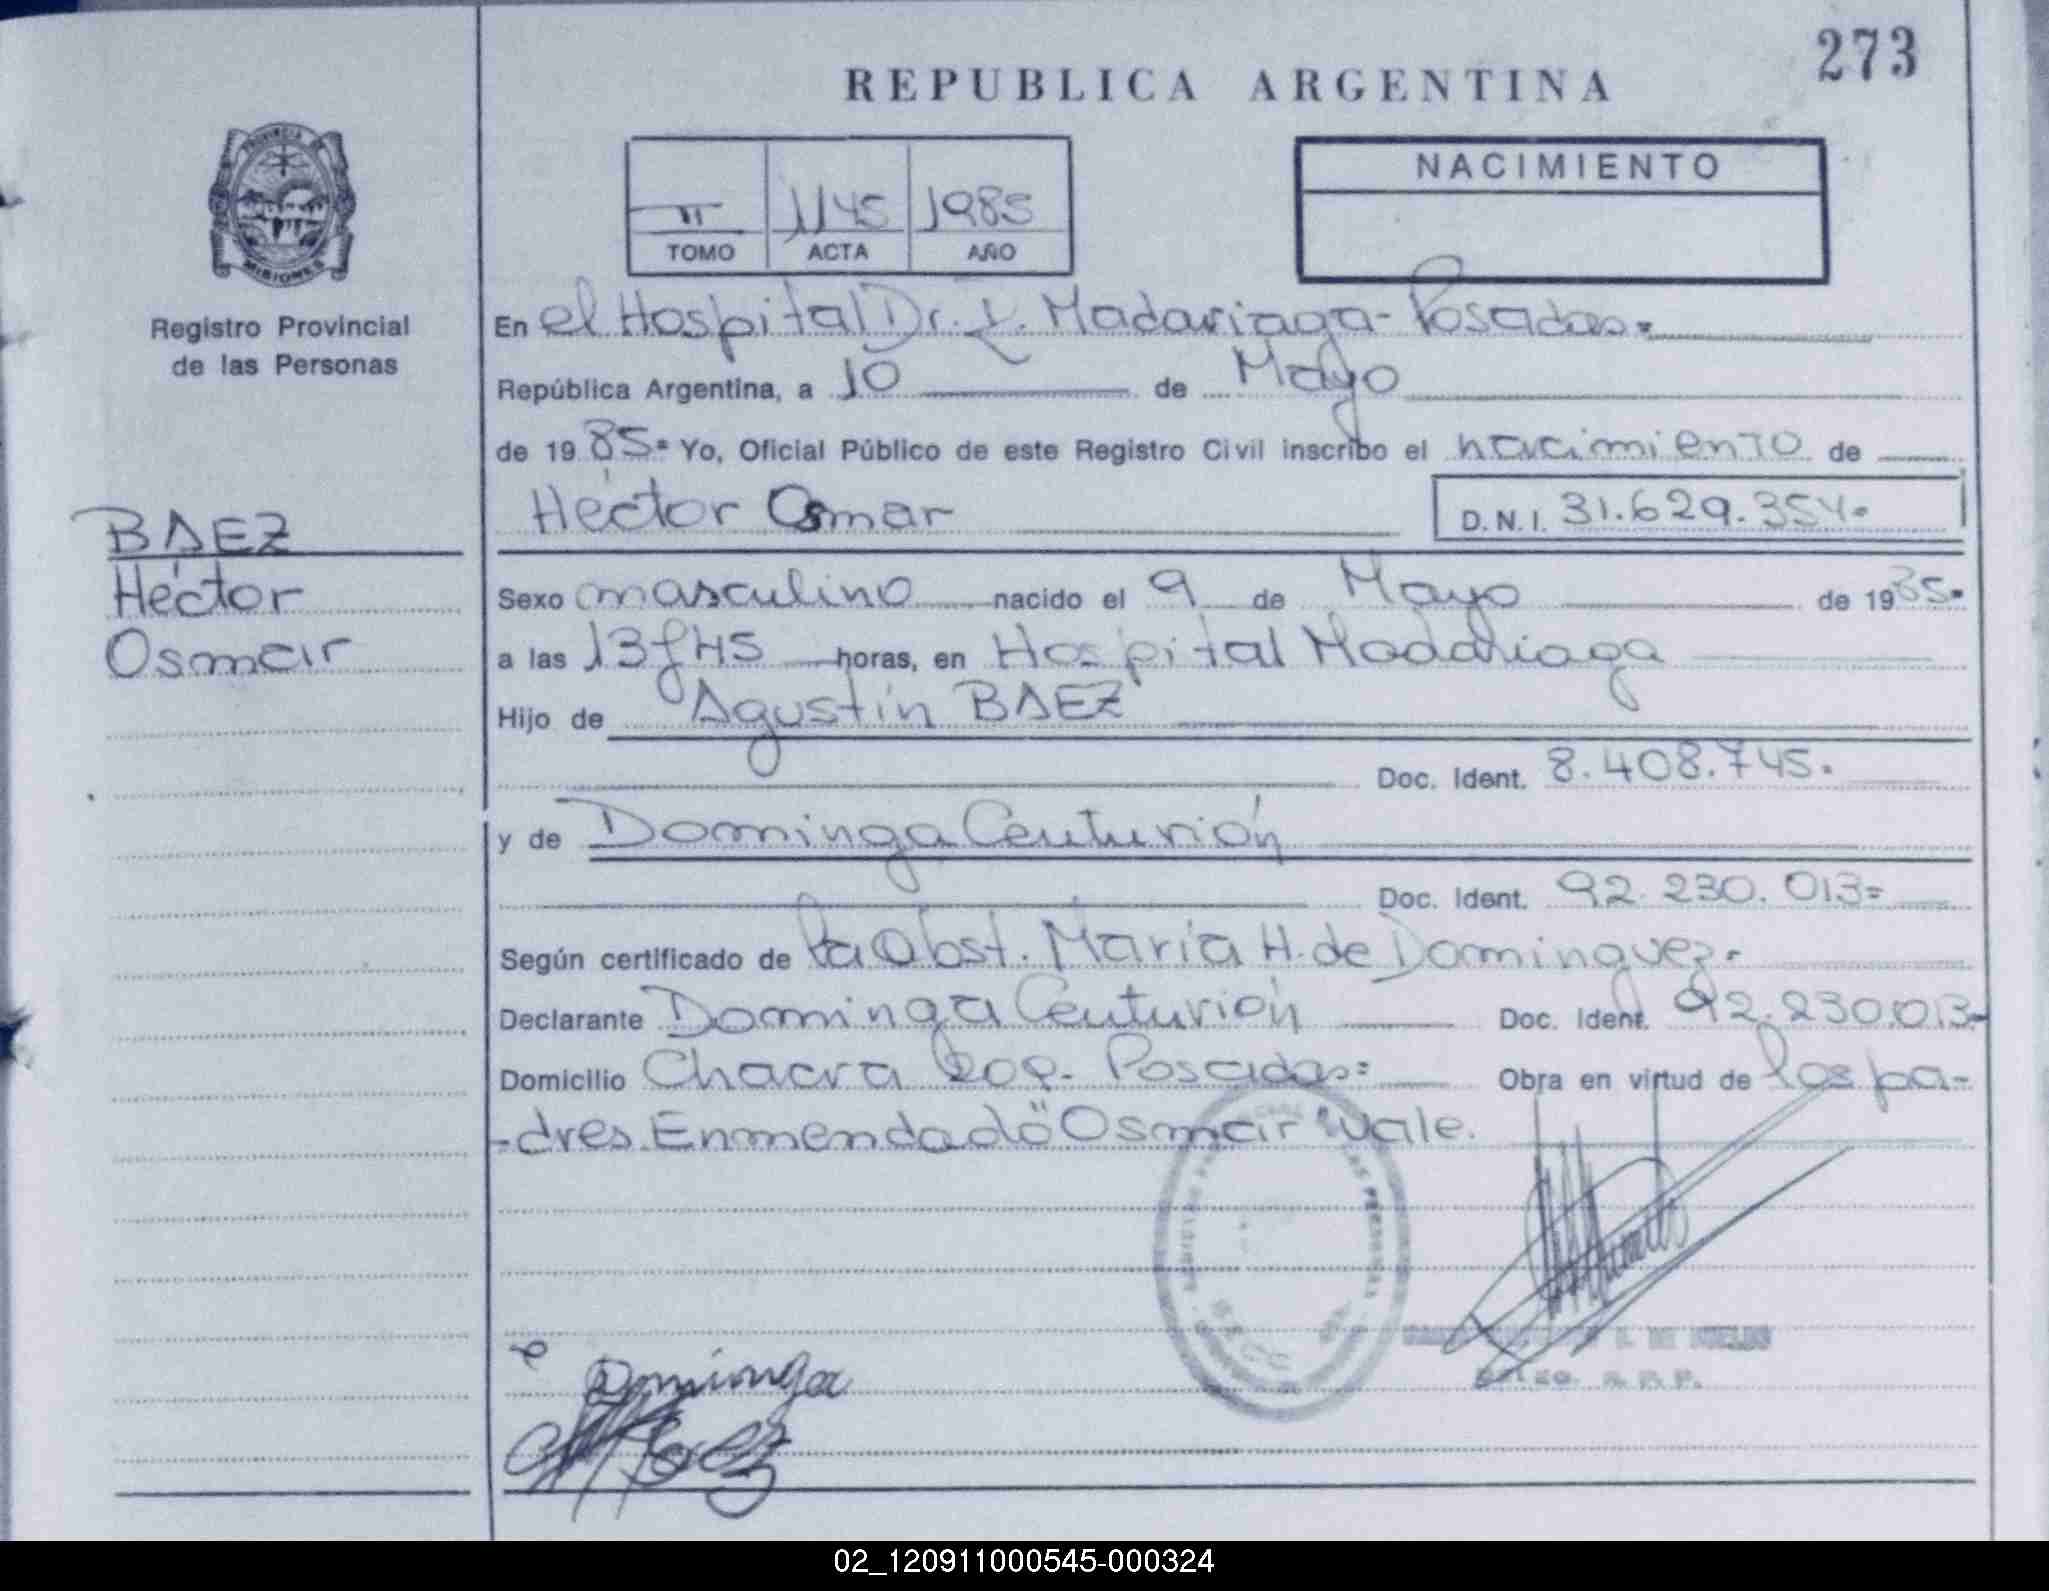 273
REPUBLICA ARGENTINA
PROVINCIA DE
MISIONES
Registro Provincial
de las Personas
II 1145 1985
TOMO ACTA AÑO
NACIMIENTO
En el Hospital Dr. R. Madariaga - Posadas=
República Argentina, a 10 de Mayo
de 1985= Yo, Oficial Público de este Registro Civil inscribo el nacimiento de
Héctor Osmar D.N.I. 31.629.354=
BAEZ
Héctor
Osmar
Sexo masculino nacido el 9 de Mayo de 1985=
a las 13 y 45 horas, en Hospital Madariaga
Hijo de Agustín BAEZ
Doc. Ident. 8.408.745.
y de Dominga Centurión
Doc. Ident. 92.230.013=
Según certificado de la Obst. María H. de Dominguez.
Declarante Dominga Centurión Doc. Ident. 92.230.013=
Domicilio Chacra Posadas= Obra en virtud de los pa-
-dres. Enmendado "Osmar" Vale.
Dominga
02_120911000545-000324